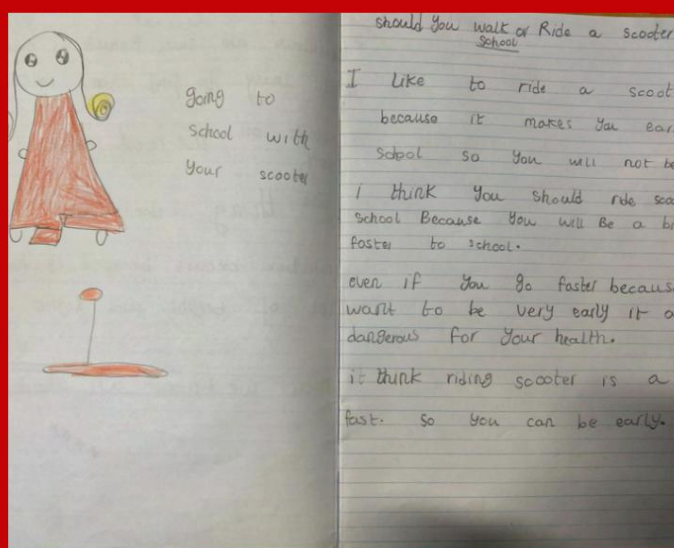 going to
school with
your scooter
should you walk or Ride a scooter
school
I Like to ride a
because it makes you
school so you will not
I think you should ride
school Because you will Be a
faster to school.
even if you go faster
want to be very early it
dangerous for your health.
it think riding scooter is a
fast. so you can be early.